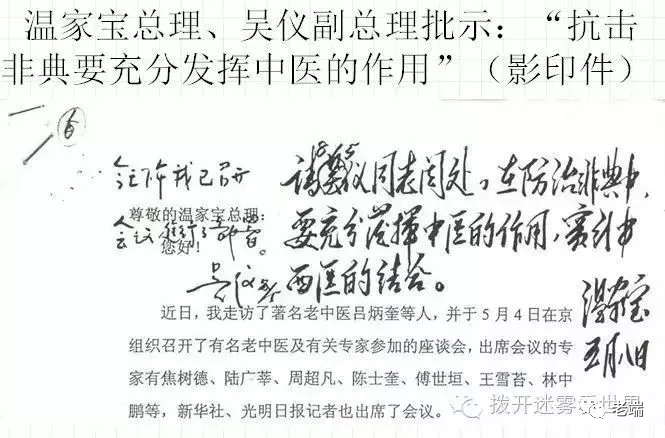 温家宝总理、吴仪副总理批示:“抗击
非典要充分发挥中医的作用”(影印件)
6
今下午我已召开
会议进行了部署。
吴仪
请吴仪同志阅处。在防治非典中,
要充分发挥中医的作用,实行中
西医的结合。
温家宝
五月八日
尊敬的温家宝总理:
您好!
近日,我走访了著名老中医吕炳奎等人,并于5月4日在京
组织召开了有名老中医及有关专家参加的座谈会,出席会议的专
家有焦树德、陆广莘、周超凡、陈士奎、傅世垣、王雪苔、林中
鹏等,新华社、光明日报记者也出席了会议。
拨开迷雾看世界
@老端